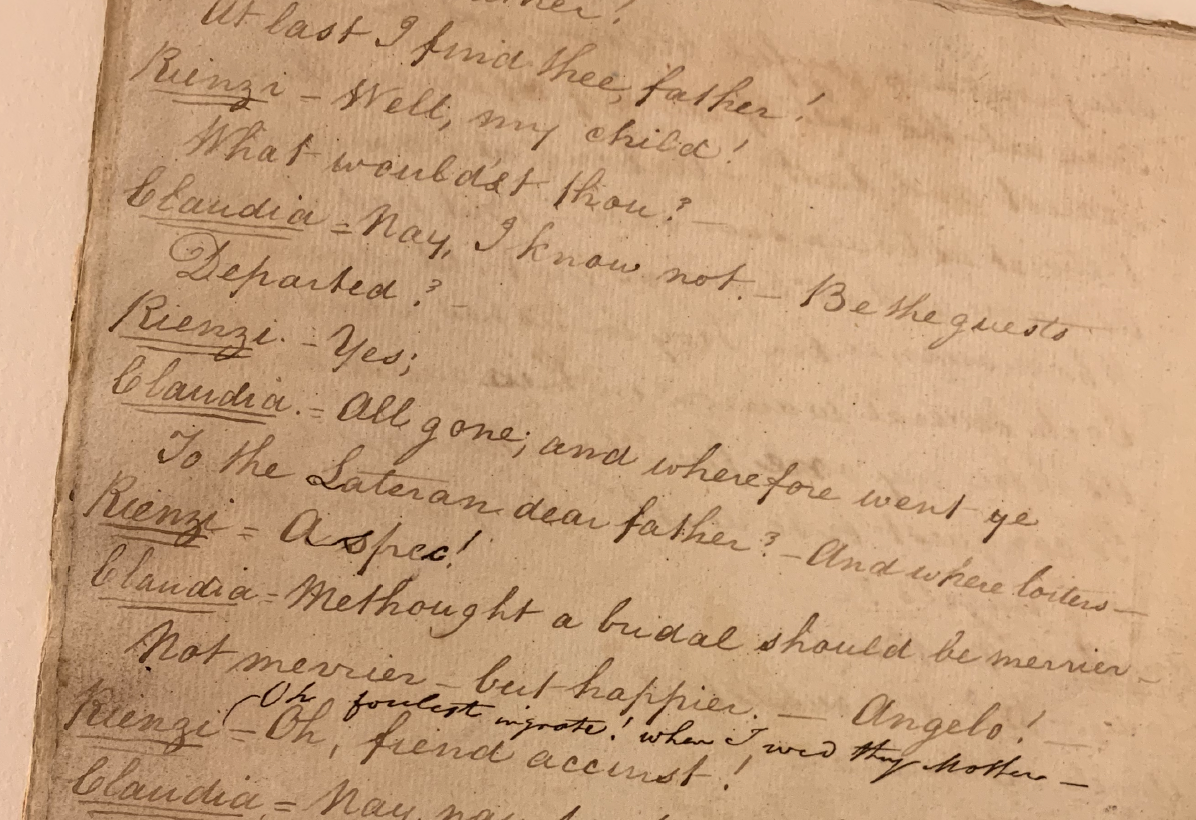 At last I find thee, father!
Rienzi - Well, my child!
What would'st thou? -
Claudia = Nay, I know not. - Be the guests
Departed? -
Rienzi. - Yes;
Claudia. = All gone; and wherefore went ye
To the Lateran dear father? - And where loiters -
Rienzi = A spec!
Claudia = Methought a bridal should be merrier -
Not merrier - but happier. - Angelo! -
(Oh foulest ingrate! when I wed thy Mother -
Rienzi - Oh, fiend accurst!
Claudia = Nay, nay